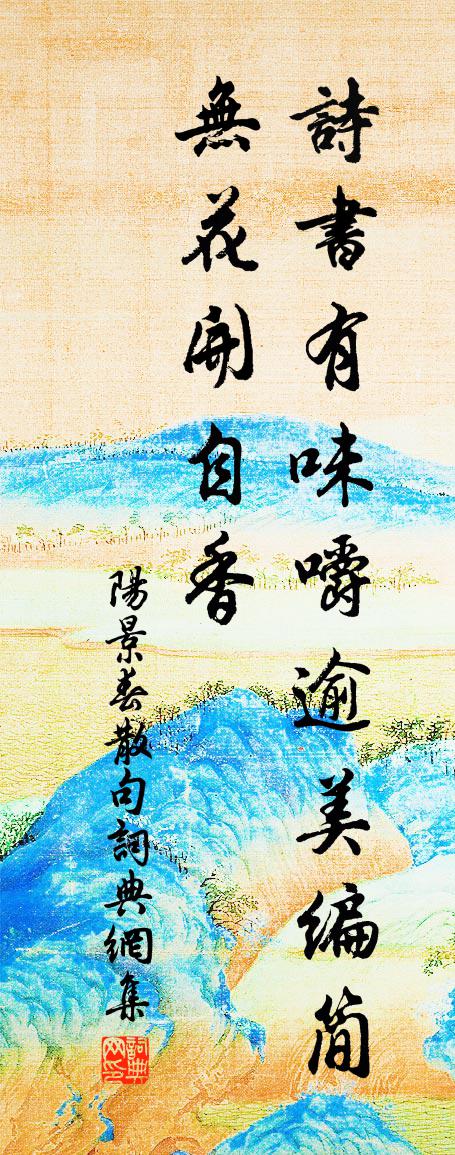 詩書有味嚼逾美編簡
無花開自香
陽景春散句詞典網集
詞典網印